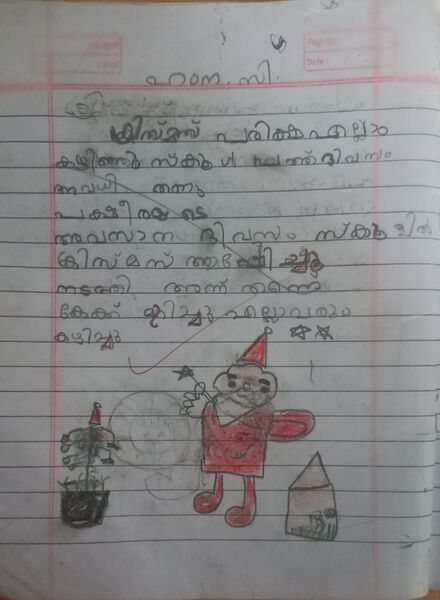 Page No.
Date:
ഹന്ന. സി.
ക്രിസ്മസ് പരിക്ഷ എല്ലാം
കഴിഞ്ഞു സ്കൂൾ പത്ത് ദിവസം
അവധി തന്നു
പരക്ഷിയുടെ
അവസാന ദിവസം സ്കൂളിൽ
ക്രിസ്മസ് ആഘോഷിച്ചു
നടത്തി അന്ന് തന്നെ
കേക്ക് മുറിച്ചു എല്ലാവരും
കഴിച്ചു